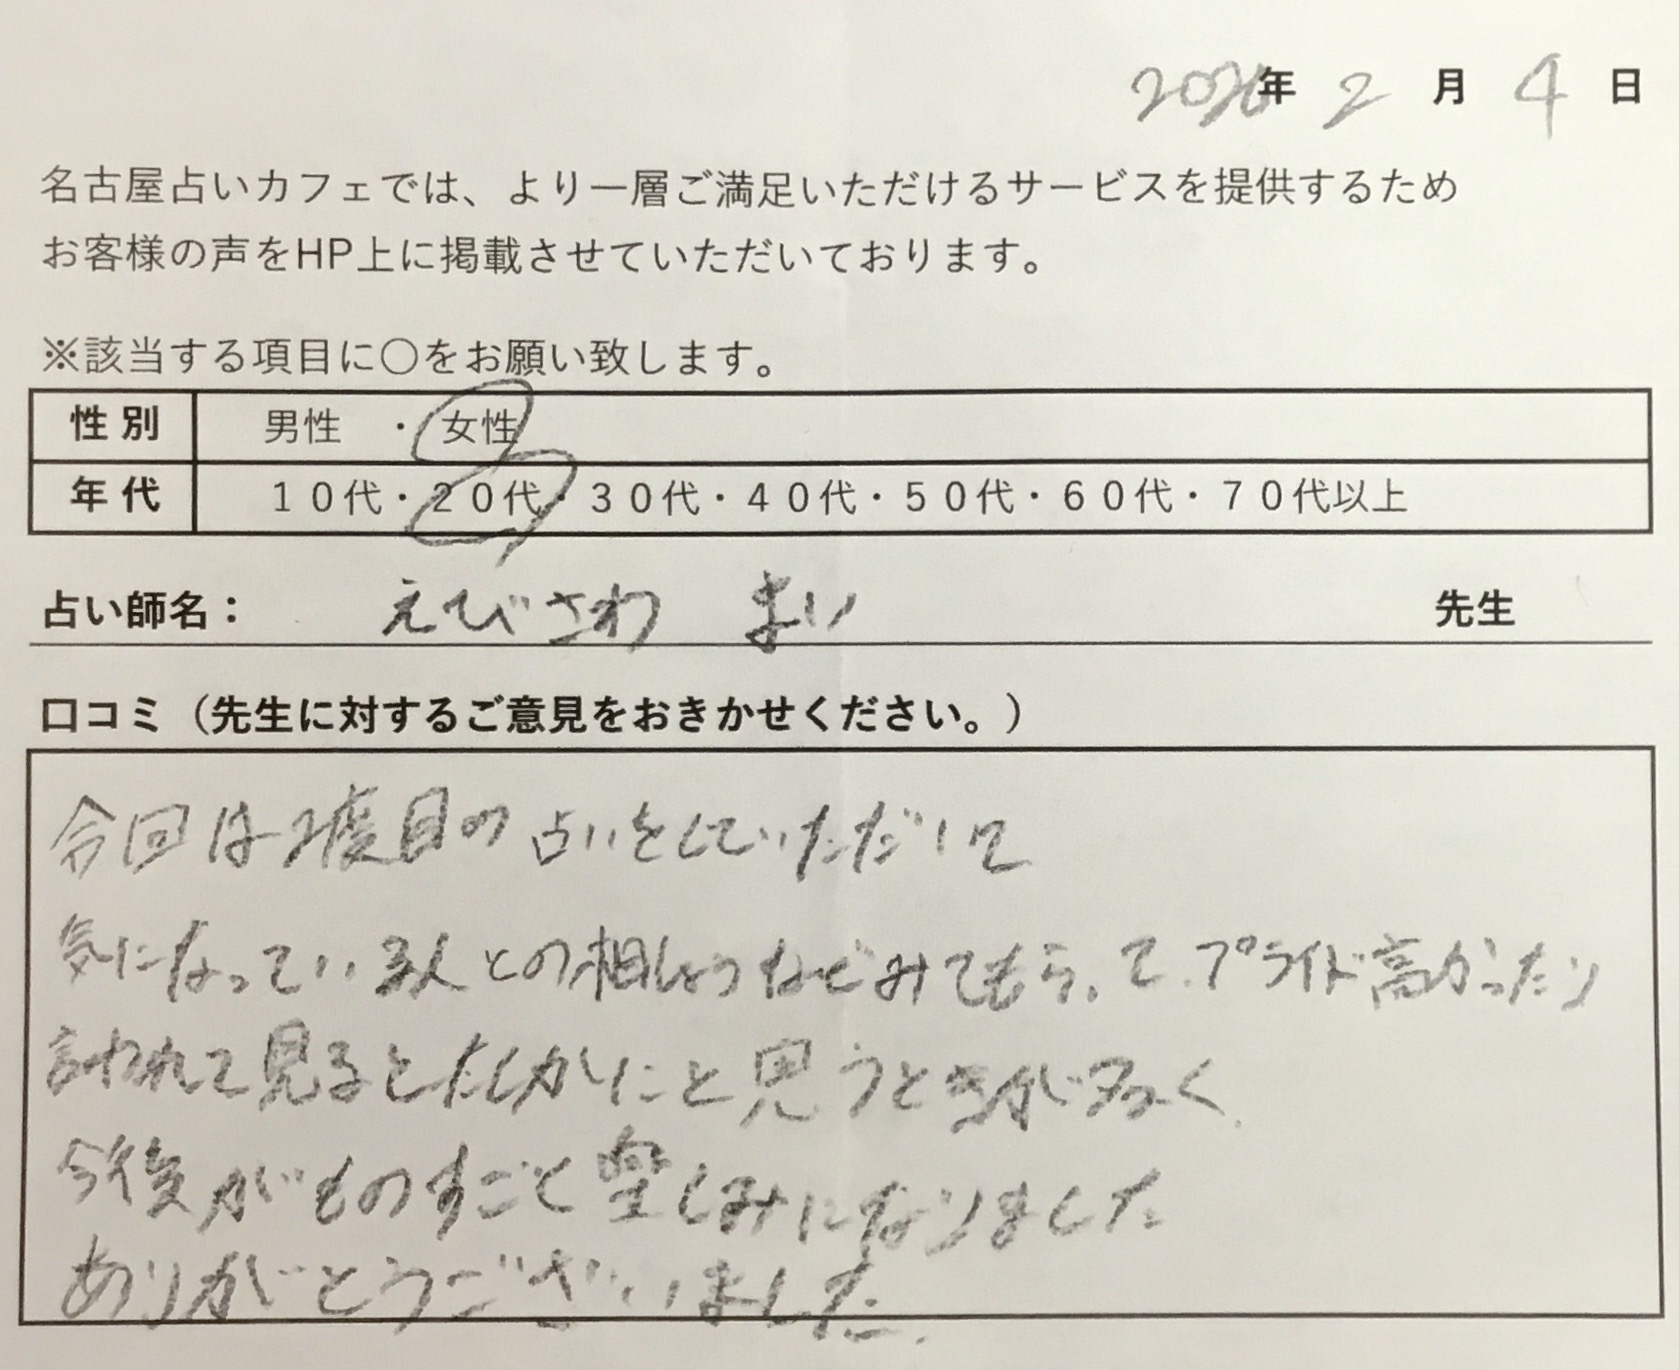 2026年 2 月 4 日
名古屋占いカフェでは、より一層ご満足いただけるサービスを提供するため
お客様の声をHP上に掲載させていただいております。
※該当する項目に〇をお願い致します。
性別 男性 ・ 女性
年代 １０代・２０代・３０代・４０代・５０代・６０代・７０代以上
占い師名： えびさわ まい 先生
口コミ（先生に対するご意見をおきかせください。）
今回は2度目の占いをしていただいて
気になっている人との相しょうなどみてもらって、プライド高かったり
言われて見るとたしかにと思うときが多く、
今後がものすごく楽しみになりました
ありがとうございました。